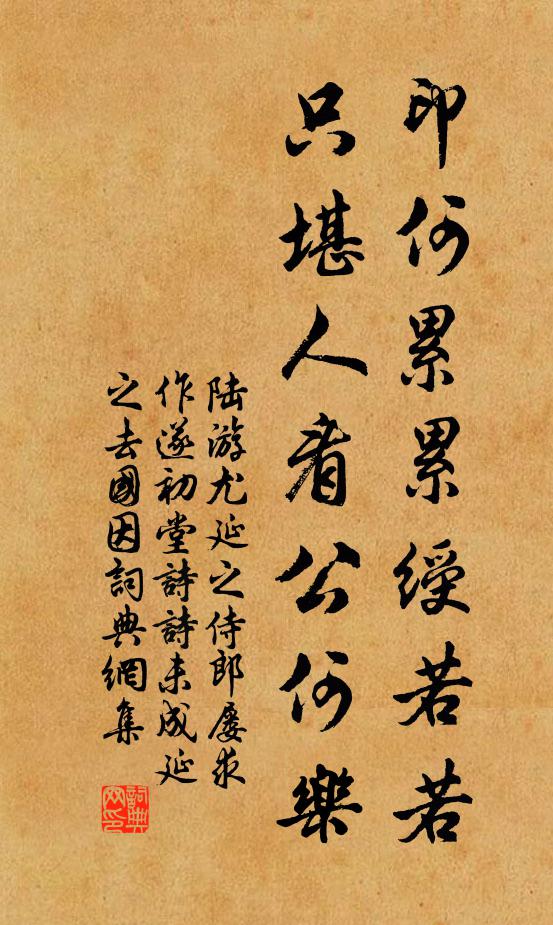 印何累累綬若若
只堪人看公何樂
陸游尤延之侍郎屢求
作遂初堂詩詩未成延
之去國因詞典網集
詞典
网印